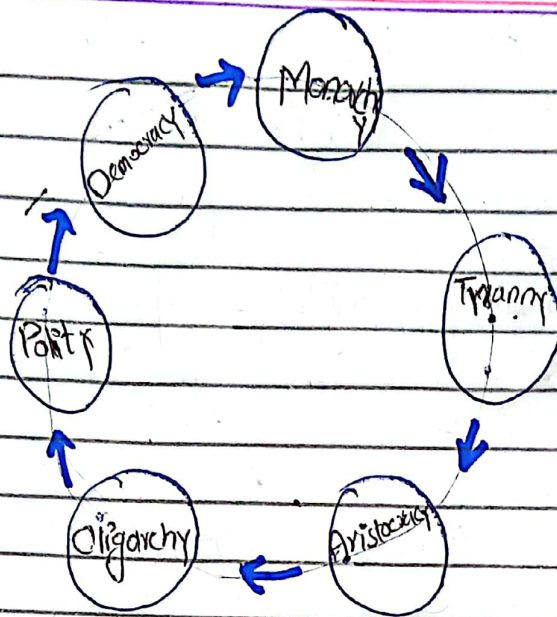 Monarchy
Tyranny
Aristocracy
Oligarchy
Polity
Democracy